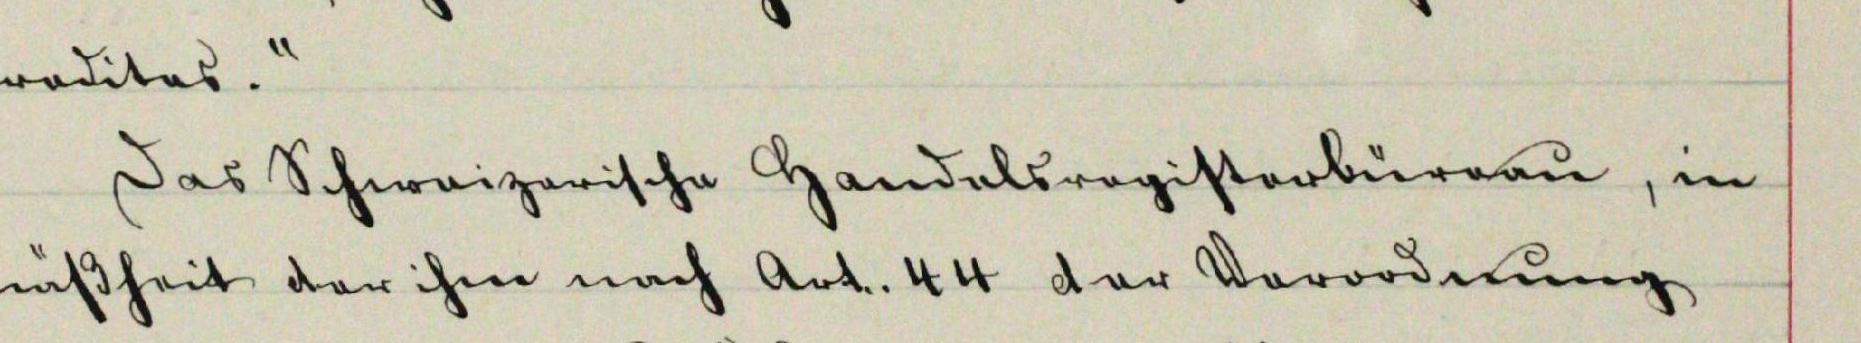 redites."
Das Schweizerische Handelsregisterbüreau, in
mäßheit der ihm nach Art. 44 der Verordnung